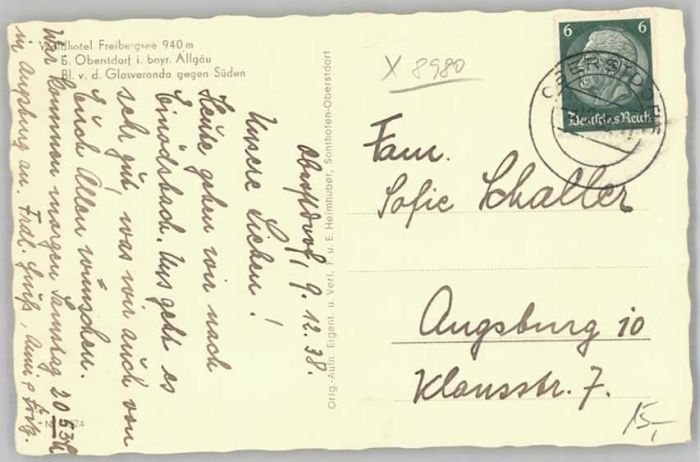 Waldhotel Freibergsee 940 m
b. Oberstdorf i. bayr. Allgäu
Bl. v. d. Glasveranda gegen Süden
Oberstdorf, 9.12.38.
Unsere Lieben!
Heute gehen wir nach
Einödsbach. Uns geht es
sehr gut, was wir auch von
Euch Allen wünschen.
Wir kommen morgen Samstag 20 53 h
in Augsburg an. Frdl. Grüße, Amy & Fritz.
Orig.-Aufn. Eigent. u. Verl. F. u. E. Heimhuber, Sonthofen-Oberstdorf
X 8980
6 6
Deutsches Reich
OBERSTDORF
Fam.
Sofie Schaller
Augsburg 10
Klausstr. 7.
15,-